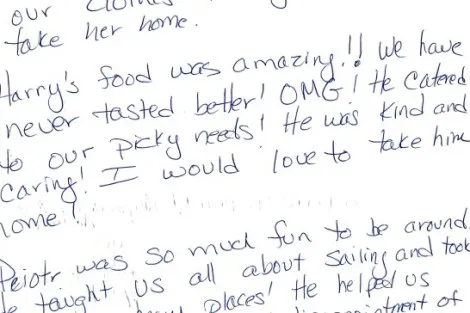 our clothes
take her home.
Harry's food was amazing!! We have
never tasted better! OMG! He catered
to our picky needs! He was kind and
caring! I would love to take him
home!
Peiotr was so much fun to be around.
taught us all about sailing and took
places! He helped us
of